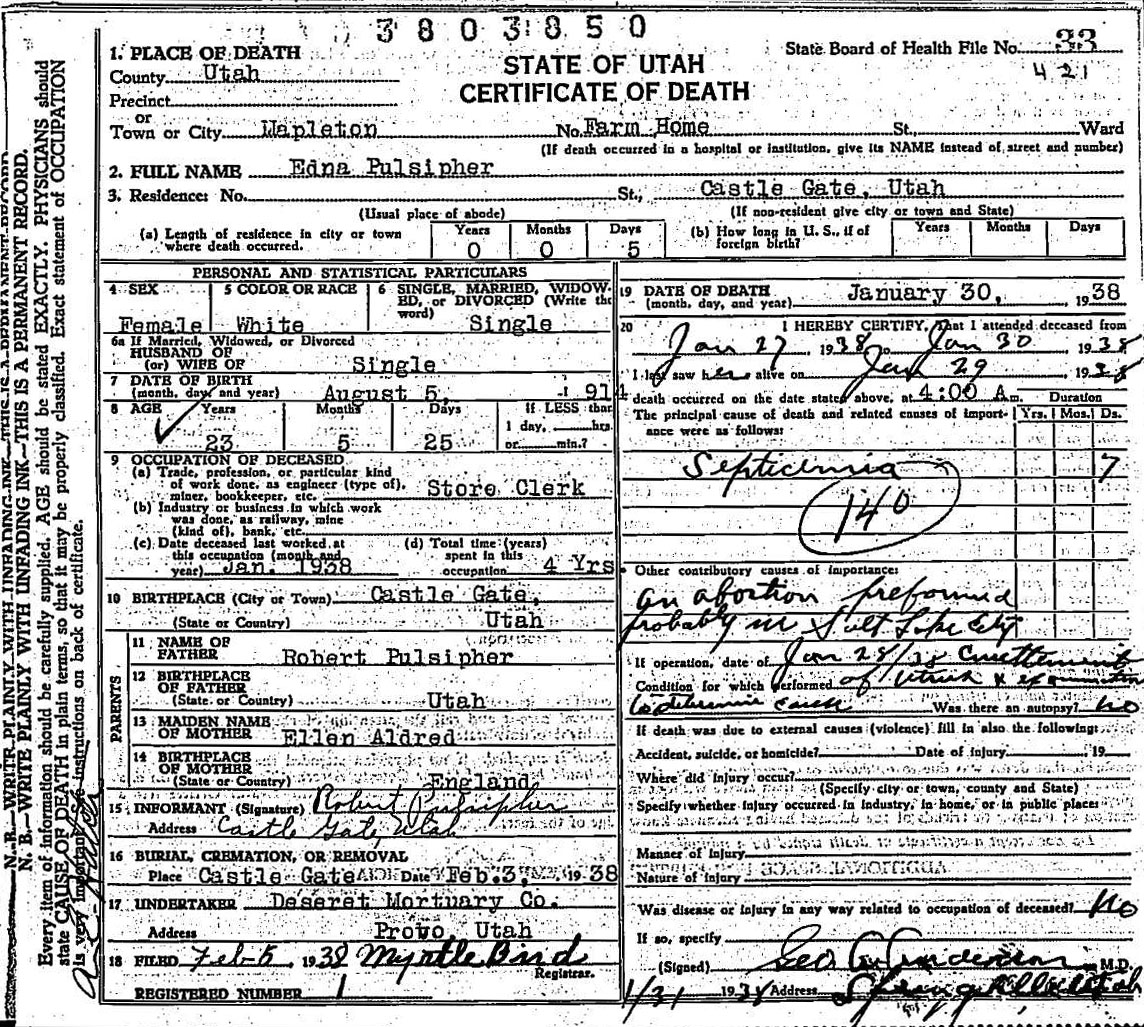 3803850
State Board of Health File No. 33
421
STATE OF UTAH
CERTIFICATE OF DEATH
1. PLACE OF DEATH
County Utah
Precinct
or
Town or City Mapleton No. Farm Home St., Ward
(If death occurred in a hospital or institution, give its NAME instead of street and number)
2. FULL NAME Edna Pulsipher
3. Residence: No. St., Castle Gate, Utah
(Usual place of abode) (If non-resident give city or town and State)
(a) Length of residence in city or town where death occurred. Years 0 Months 0 Days 5
(b) How long in U. S., if of foreign birth? Years Months Days
PERSONAL AND STATISTICAL PARTICULARS
4 SEX Female
5 COLOR OR RACE White
6 SINGLE, MARRIED, WIDOW-
ED, or DIVORCED (Write the
word) Single
6a If Married, Widowed, or Divorced
HUSBAND OF
(or) WIFE OF Single
7 DATE OF BIRTH
(month, day, and year) August 5, 1914
8 AGE Years 23 Months 5 Days 25
If LESS than
1 day, hrs.
or min.?
9 OCCUPATION OF DECEASED
(a) Trade, profession, or particular kind
of work done, as engineer (type of),
miner, bookkeeper, etc. Store Clerk
(b) Industry or business in which work
was done, as railway, mine
(kind of), bank, etc.
(c) Date deceased last worked at
this occupation (month and
year) Jan. 1938
(d) Total time (years)
spent in this
occupation 4 Yrs
10 BIRTHPLACE (City or Town) Castle Gate,
(State or Country) Utah
PARENTS
11 NAME OF
FATHER Robert Pulsipher
12 BIRTHPLACE
OF FATHER
(State or Country) Utah
13 MAIDEN NAME
OF MOTHER Ellen Aldred
14 BIRTHPLACE
OF MOTHER
(State or Country) England
15 INFORMANT (Signature) Robert Pulsipher
Address Castle Gate, Utah
16 BURIAL, CREMATION, OR REMOVAL
Place Castle Gate Date Feb. 3, 1938
17 UNDERTAKER Deseret Mortuary Co.
Address Provo, Utah
18 FILED Feb-5 1938 Myrtle Bird
Registrar.
REGISTERED NUMBER 1
19 DATE OF DEATH
(month, day, and year) January 30, 1938
20 I HEREBY CERTIFY, that I attended deceased from
Jan 27 1938 to Jan 30 1938
I last saw her alive on Jan 29 1938
death occurred on the date stated above, at 4:00 A.m.
Duration
The principal cause of death and related causes of import-
ance were as follows: Yrs. Mos. Ds.
Septicemia 7
140
Other contributory causes of importance:
an abortion preformed
probably in Salt Lake City
If operation, date of Jan 28/38 Curettement
Condition for which performed of Utrus & examination
to determine cause Was there an autopsy? No
If death was due to external causes (violence) fill in also the following:
Accident, suicide, or homicide? Date of injury 19
Where did injury occur?
(Specify city or town, county and State)
Specify whether injury occurred in industry, in home, or in public place:
Manner of injury
Nature of injury
Was disease or injury in any way related to occupation of deceased? No
If so, specify
(Signed) Geo A Anderson M.D.
1/31 1938 Address Springville Utah
N. B.—WRITE PLAINLY WITH UNFADING INK—THIS IS A PERMANENT RECORD.
N. B.—WRITE PLAINLY WITH UNFADING INK—THIS IS A PERMANENT RECORD.
Every item of information should be carefully supplied. AGE should be stated EXACTLY. PHYSICIANS should
state CAUSE OF DEATH in plain terms, so that it may be properly classified. Exact statement of OCCUPATION
is very important. See instructions on back of certificate.